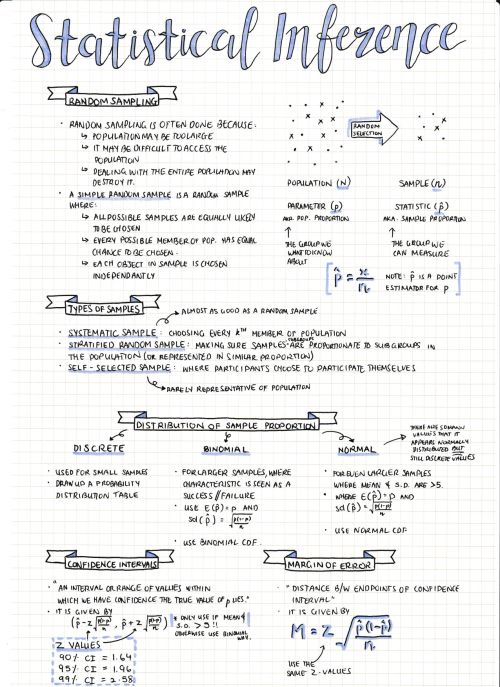 Statistical Inference
RANDOM SAMPLING
• RANDOM SAMPLING IS OFTEN DONE BECAUSE:
↳ POPULATION MAY BE TOO LARGE
↳ IT MAY BE DIFFICULT TO ACCESS THE
POPULATION
↳ DEALING WITH THE ENTIRE POPULATION MAY
DESTROY IT.
• A SIMPLE RANDOM SAMPLE IS A RANDOM SAMPLE
WHERE:
↳ ALL POSSIBLE SAMPLES ARE EQUALLY LIKELY
TO BE CHOSEN
↳ EVERY POSSIBLE MEMBER OF POP. HAS EQUAL
CHANCE TO BE CHOSEN.
↳ EACH OBJECT IN SAMPLE IS CHOSEN
INDEPENDANTLY
RANDOM
SELECTION
POPULATION (N)
SAMPLE (n)
PARAMETER (p)
AKA. POP. PROPORTION
STATISTIC (p̂)
AKA. SAMPLE PROPORTION
↑
THE GROUP WE
WANT TO KNOW
ABOUT
↑
THE GROUP WE
CAN MEASURE
p̂ = x/n
NOTE: p̂ IS A POINT
ESTIMATOR FOR p
TYPES OF SAMPLES
ALMOST AS GOOD AS A RANDOM SAMPLE
• SYSTEMATIC SAMPLE: CHOOSING EVERY kTH MEMBER OF POPULATION
• STRATIFIED RANDOM SAMPLE: MAKING SURE SAMPLES SUBGROUPS ARE PROPORTIONATE TO SUBGROUPS IN
THE POPULATION (OR REPRESENTED IN SIMILAR PROPORTION)
• SELF-SELECTED SAMPLE: WHERE PARTICIPANTS CHOOSE TO PARTICIPATE THEMSELVES
RARELY REPRESENTATIVE OF POPULATION
DISTRIBUTION OF SAMPLE PROPORTION
DISCRETE
• USED FOR SMALL SAMPLES
• DRAW UP A PROBABILITY
DISTRIBUTION TABLE
BINOMIAL
• FOR LARGER SAMPLES, WHERE
CHARACTERISTIC IS SEEN AS A
SUCCESS//FAILURE
• USE E(p̂)=p AND
sd(p̂) = √(p(1-p)/n)
• USE BINOMIAL CDF.
NORMAL
• FOR EVEN LARGER SAMPLES
WHERE MEAN & S.D. ARE >5.
• WHERE E(p̂)=p AND
sd(p̂) = √(p(1-p)/n)
• USE NORMAL CDF
THERE ARE SO MANY
VALUES THAT IT
APPEARS NORMALLY
DISTRIBUTED BUT
STILL DISCRETE VALUES
CONFIDENCE INTERVALS
• "AN INTERVAL OR RANGE OF VALUES WITHIN
WHICH WE HAVE CONFIDENCE THE TRUE VALUE OF p LIES."
• IT IS GIVEN BY
(p̂-z√(p̂(1-p̂)/n), p̂+z√(p̂(1-p̂)/n))
* ONLY USE IF MEAN &
S.D. > 5 !!
OTHERWISE USE BINOMIAL
WAY.
Z VALUES
90% CI = 1.64
95% CI = 1.96
99% CI = 2.58
MARGIN OF ERROR
• "DISTANCE B/W ENDPOINTS OF CONFIDENCE
INTERVAL"
• IT IS GIVEN BY
M = Z √(p̂(1-p̂)/n)
USE THE
SAME Z-VALUES